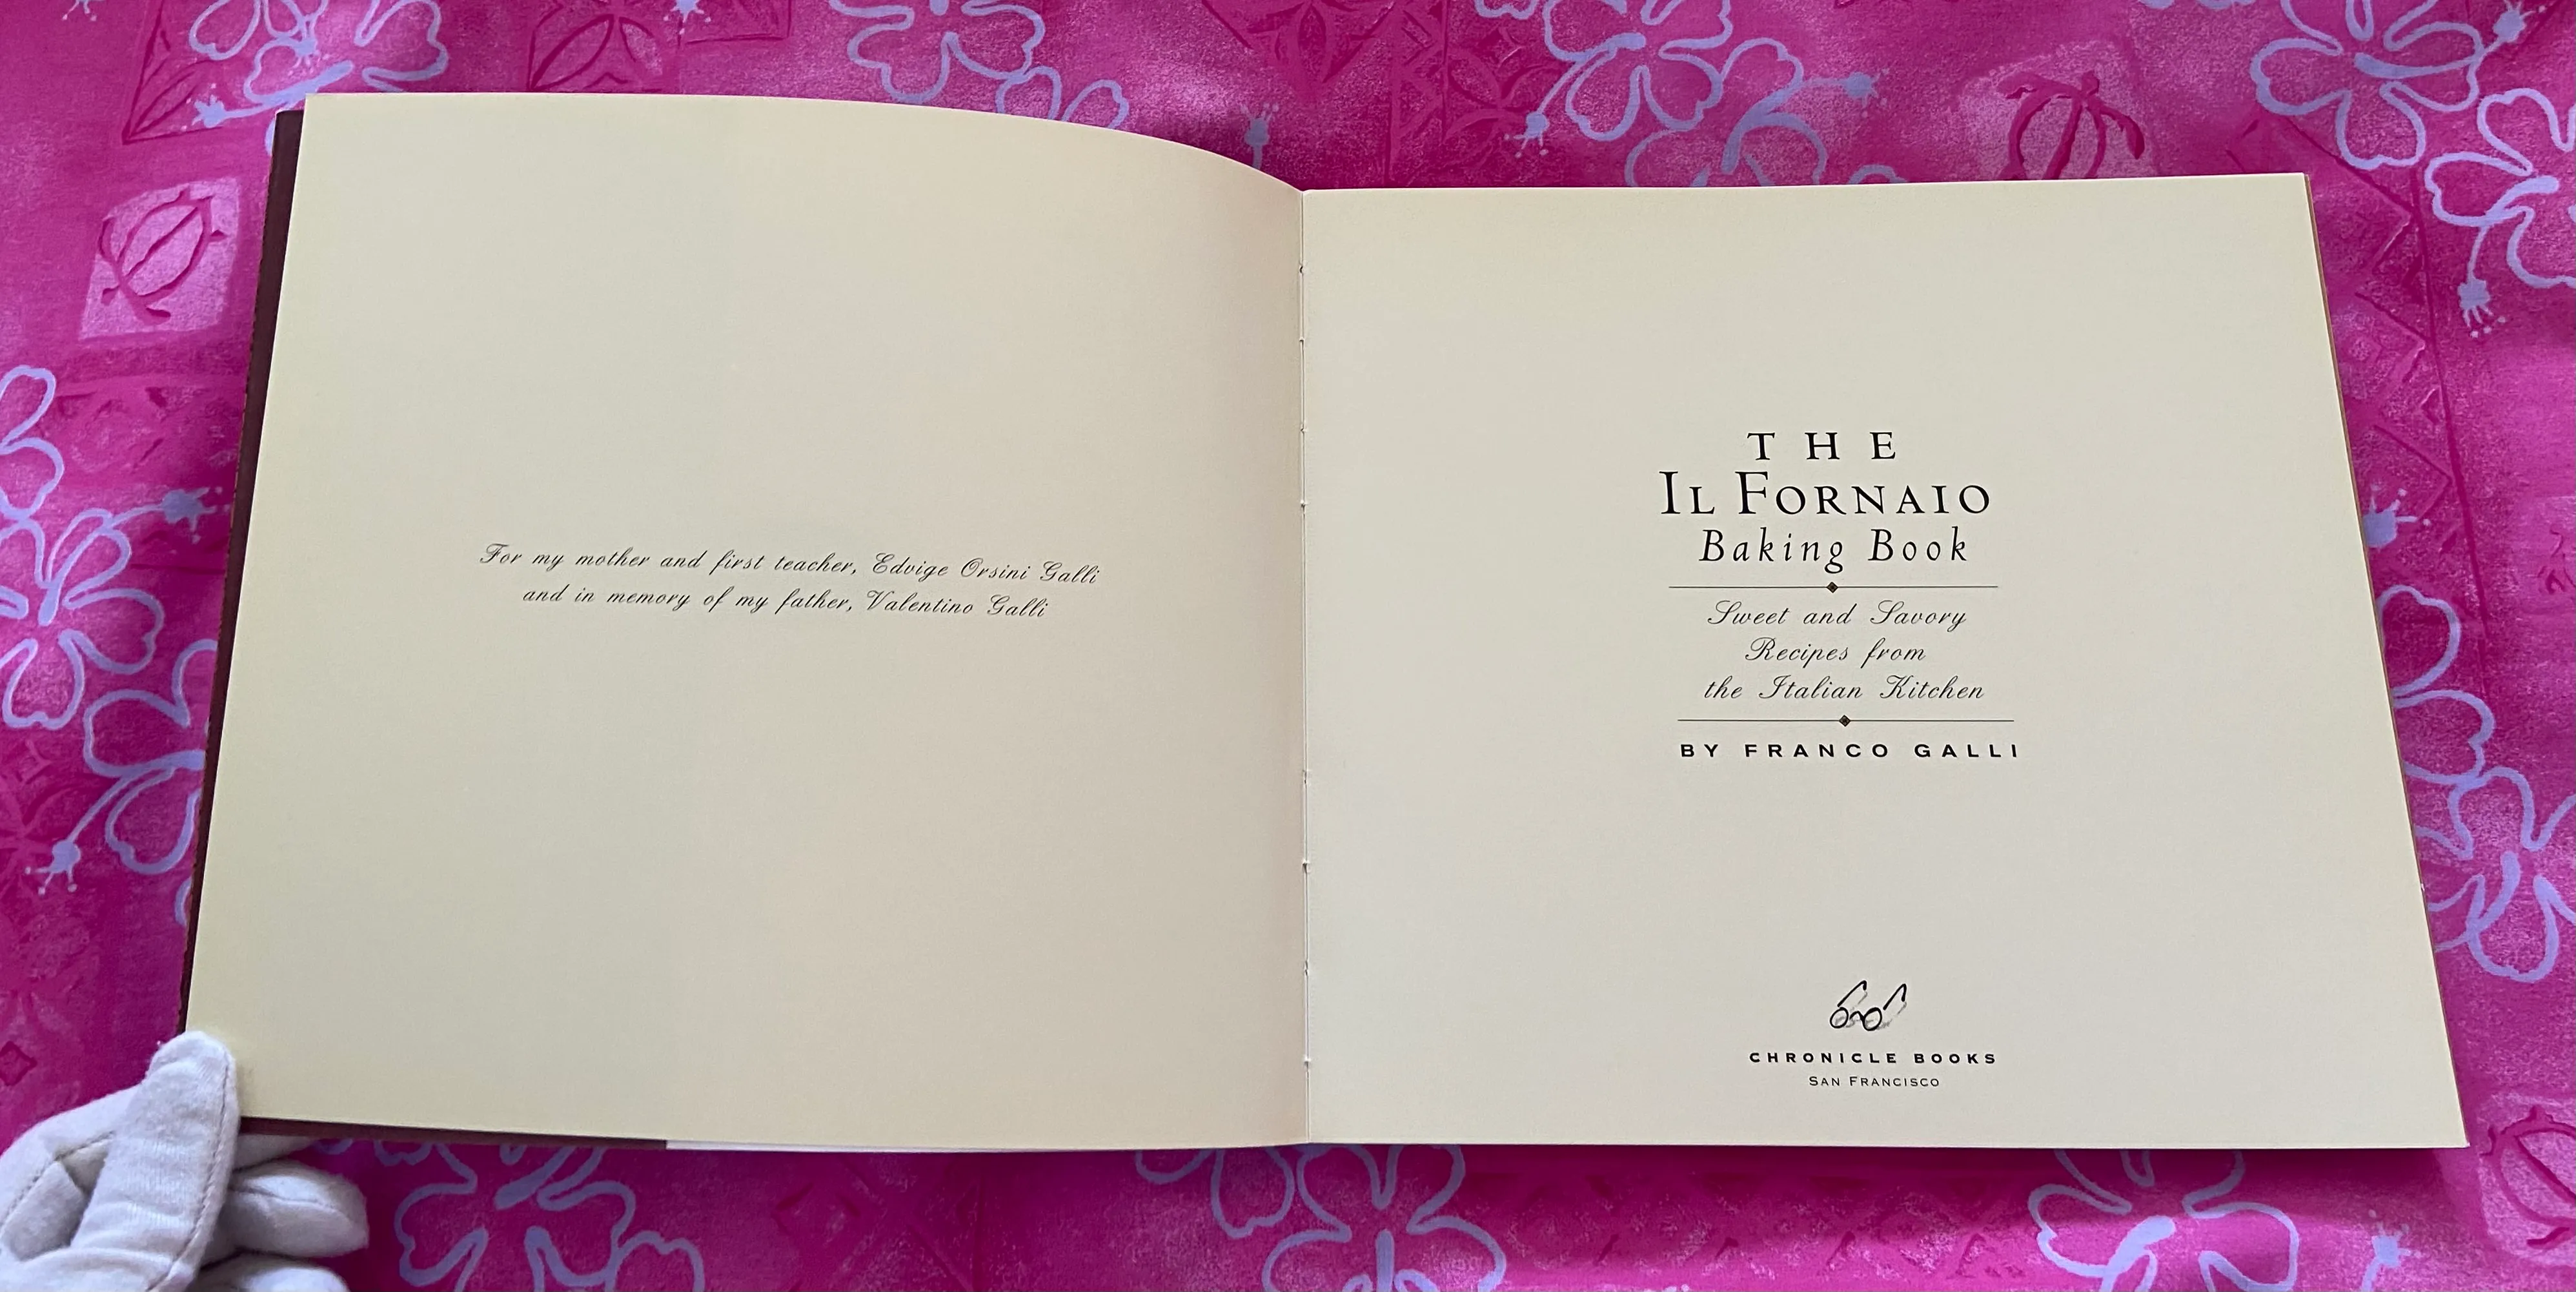 For my mother and first teacher, Edvige Orsini Galli
and in memory of my father, Valentino Galli
THE
IL FORNAIO
Baking Book
Sweet and Savory
Recipes from
the Italian Kitchen
BY FRANCO GALLI
CHRONICLE BOOKS
SAN FRANCISCO